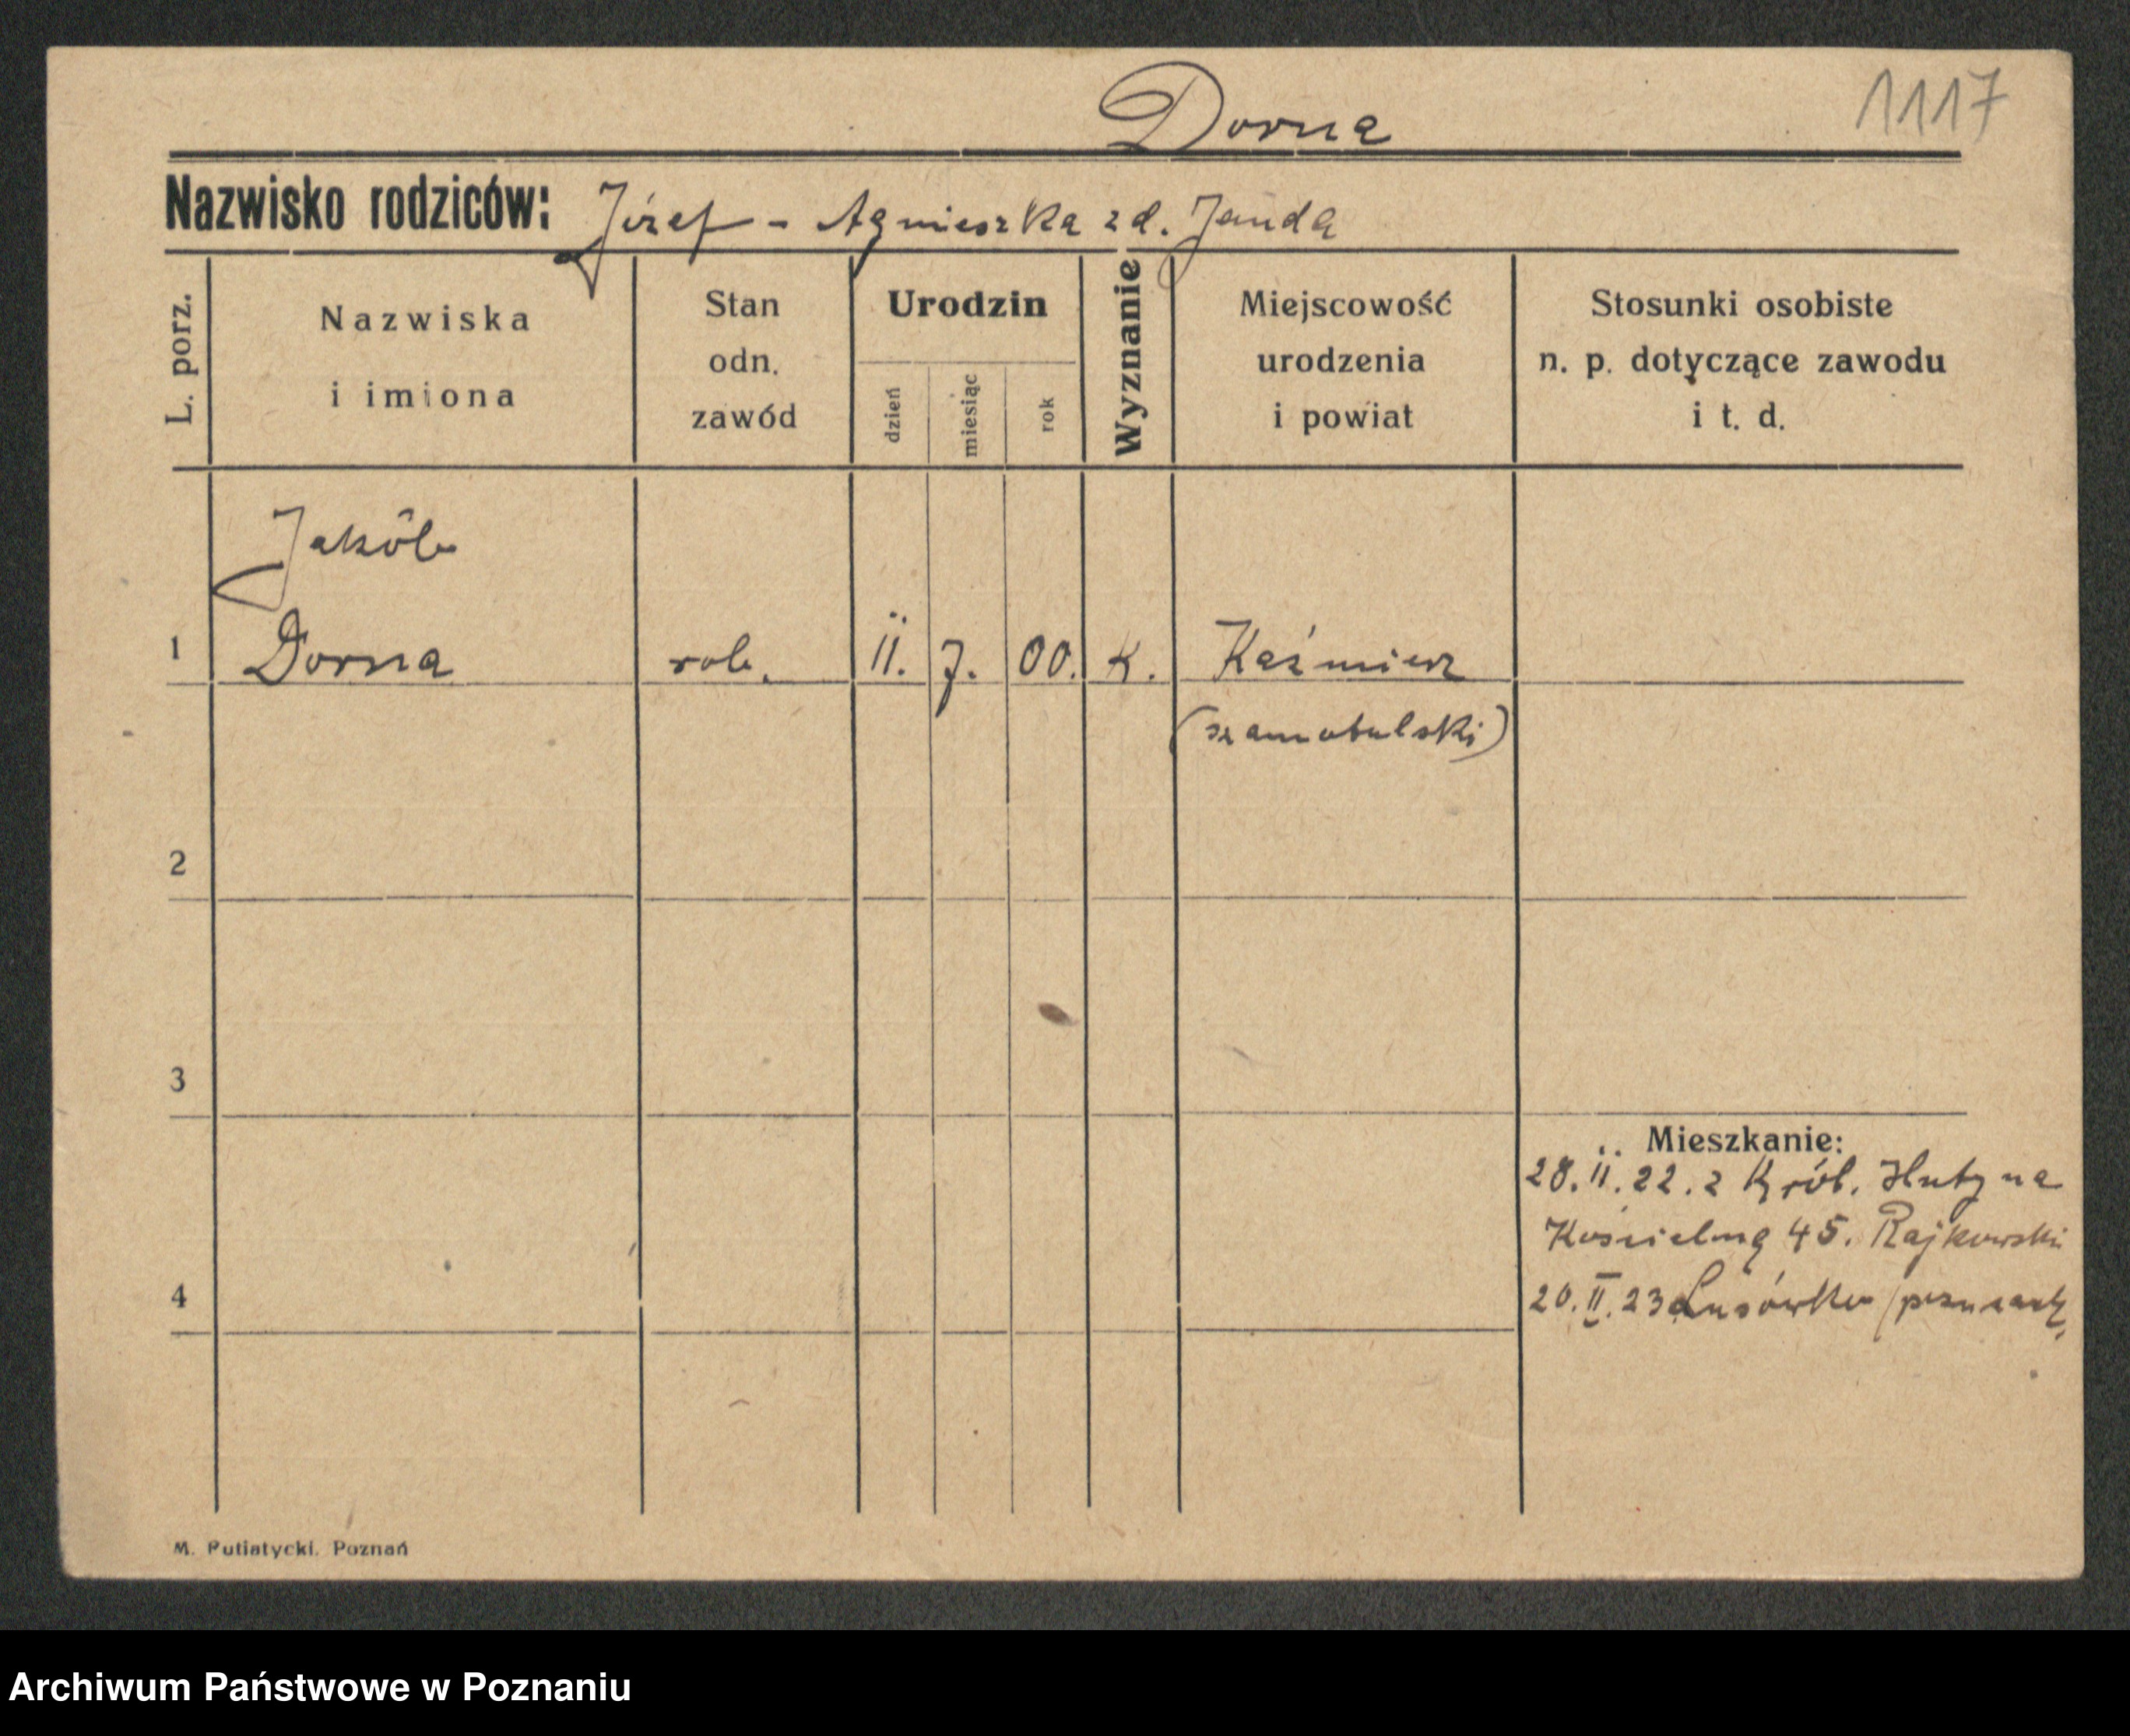 Dorna
1117
Nazwisko rodziców: Józef - Agnieszka zd. Janda
L. porz.
Nazwiska
i imiona
Stan
odn.
zawód
Urodzin
dzień
miesiąc
rok
Wyznanie
Miejscowość
urodzenia
i powiat
Stosunki osobiste
n. p. dotyczące zawodu
i t. d.
Jakób
1 Dorna rob. 11. 7. 00. k. Kaźmierz
(szamotulski)
2
3
Mieszkanie:
28. 11. 22. z Król. Huty na
Kościelną 45. Rajkowski
4
20. II. 23 Lusówko
M. Putiatycki. Poznań
Archiwum Państwowe w Poznaniu